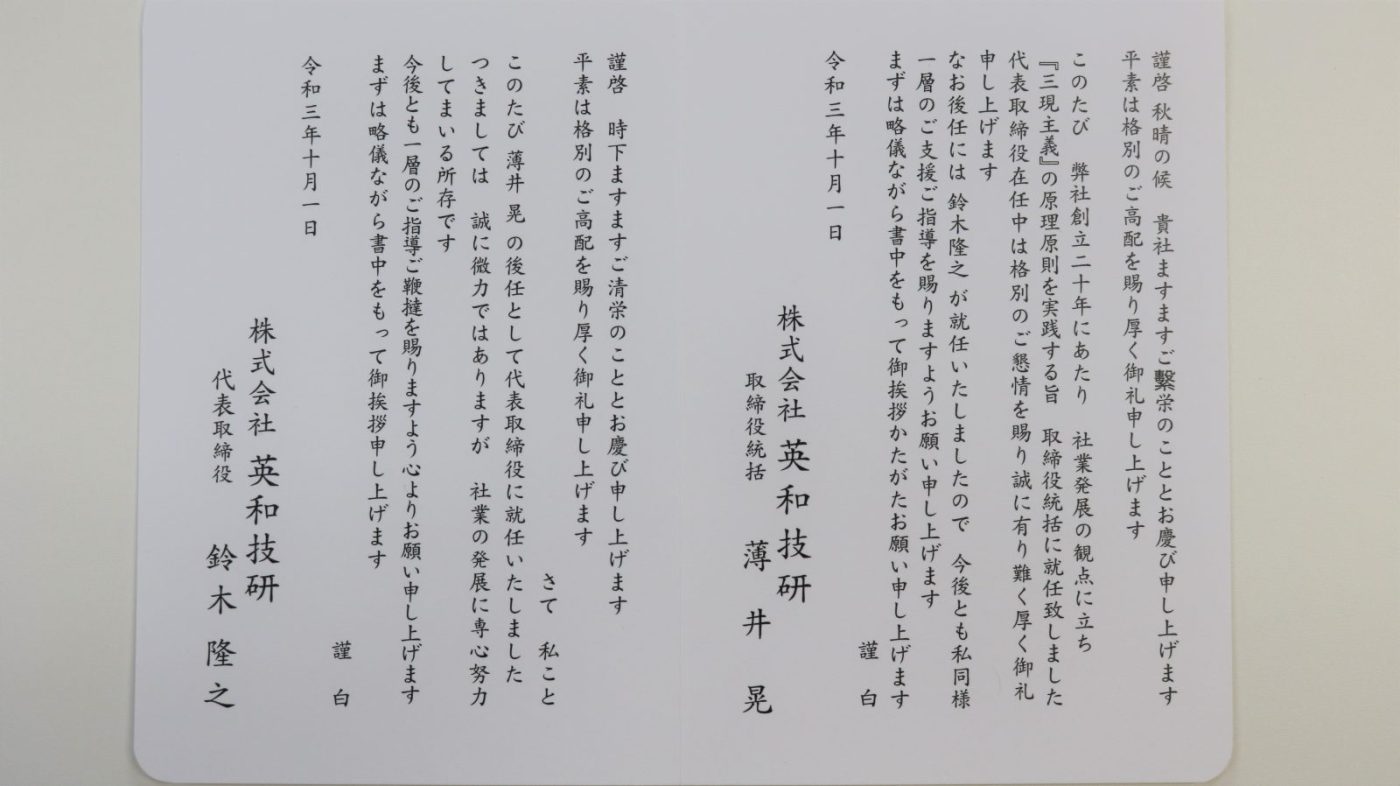 謹啓 秋晴の候　貴社ますますご繫栄のこととお慶び申し上げます
平素は格別のご高配を賜り厚く御礼申し上げます
このたび　弊社創立二十年にあたり　社業発展の観点に立ち
『三現主義』の原理原則を実践する旨　取締役統括に就任致しました
代表取締役在任中は格別のご懇情を賜り誠に有り難く厚く御礼
申し上げます
なお後任には 鈴木隆之 が就任いたしましたので　今後とも私同様
一層のご支援ご指導を賜りますようお願い申し上げます
まずは略儀ながら書中をもって御挨拶かたがたお願い申し上げます
謹　白
令和三年十月一日
株式会社 英和技研
取締役統括　薄　井　晃
謹啓　時下ますますご清栄のこととお慶び申し上げます
平素は格別のご高配を賜り厚く御礼申し上げます
さて　私こと
このたび 薄井 晃 の後任として代表取締役に就任いたしました
つきましては　誠に微力ではありますが　社業の発展に専心努力
してまいる所存です
今後とも一層のご指導ご鞭撻を賜りますよう心よりお願い申し上げます
まずは略儀ながら書中をもって御挨拶申し上げます
謹　白
令和三年十月一日
株式会社 英和技研
代表取締役　鈴木隆之